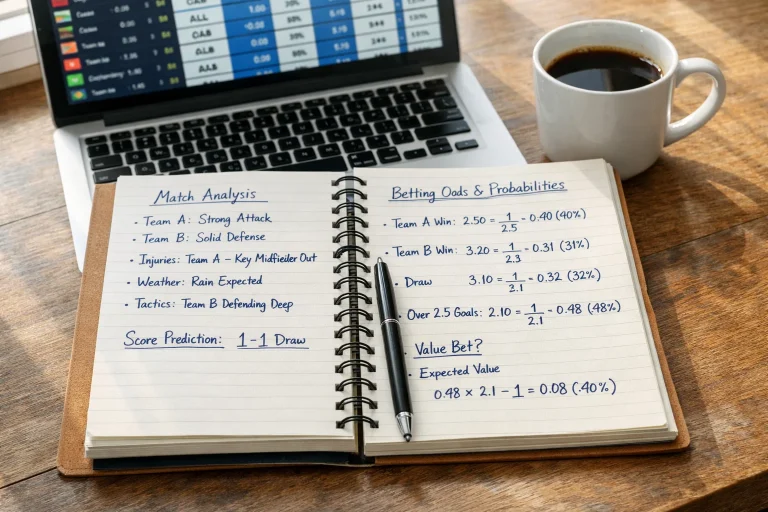 ALL
Match Analysis
· Team A: Strong Attack
· Team B: Solid Defense
· Injuries: Team A – Key Midfieiler Out
· Weather: Rain Expected
· Tactics: Team B Defending Deep
Score Prediction: 1-1 Draw
Betting Oads & Probabilities
· Team A Win: 2.50 = 1/2.5 - 0.40 (40%)
· Team B Win: 3.20 = 1/2.3 - 0.31 (31%)
· Draw 3.10 = 1/2.1 - 0.32 (32%)
· Over 2.5 Goals: 2.10 = 1/2.1 - 0.48 (48%)
· Value Bet?
· Expected Value
0.48 × 2.1 – 1 = 0.08 (.40%)